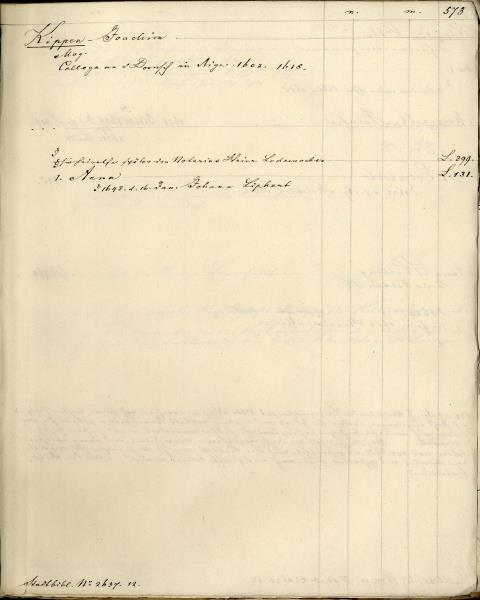 n. m. 573
Kippen - Joachim
Mag.
Collega an d Domsch in Riga 1602. 1618.
später des Notarius Heinr Lademacher L. 299.
1. Anna L. 131.
1643. d. 16. Jan. Johann Liphart
Stadtbibl. No 2637. 12.